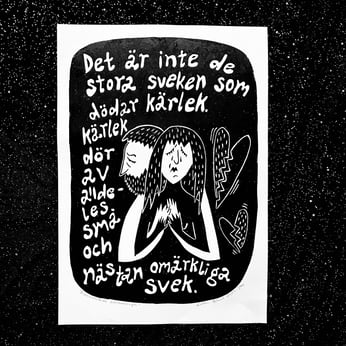 Det är inte de
stora sveken som
dödar kärlek.
kärlek
dör
av
allde-
les
små
och
nästan omärkliga
svek.